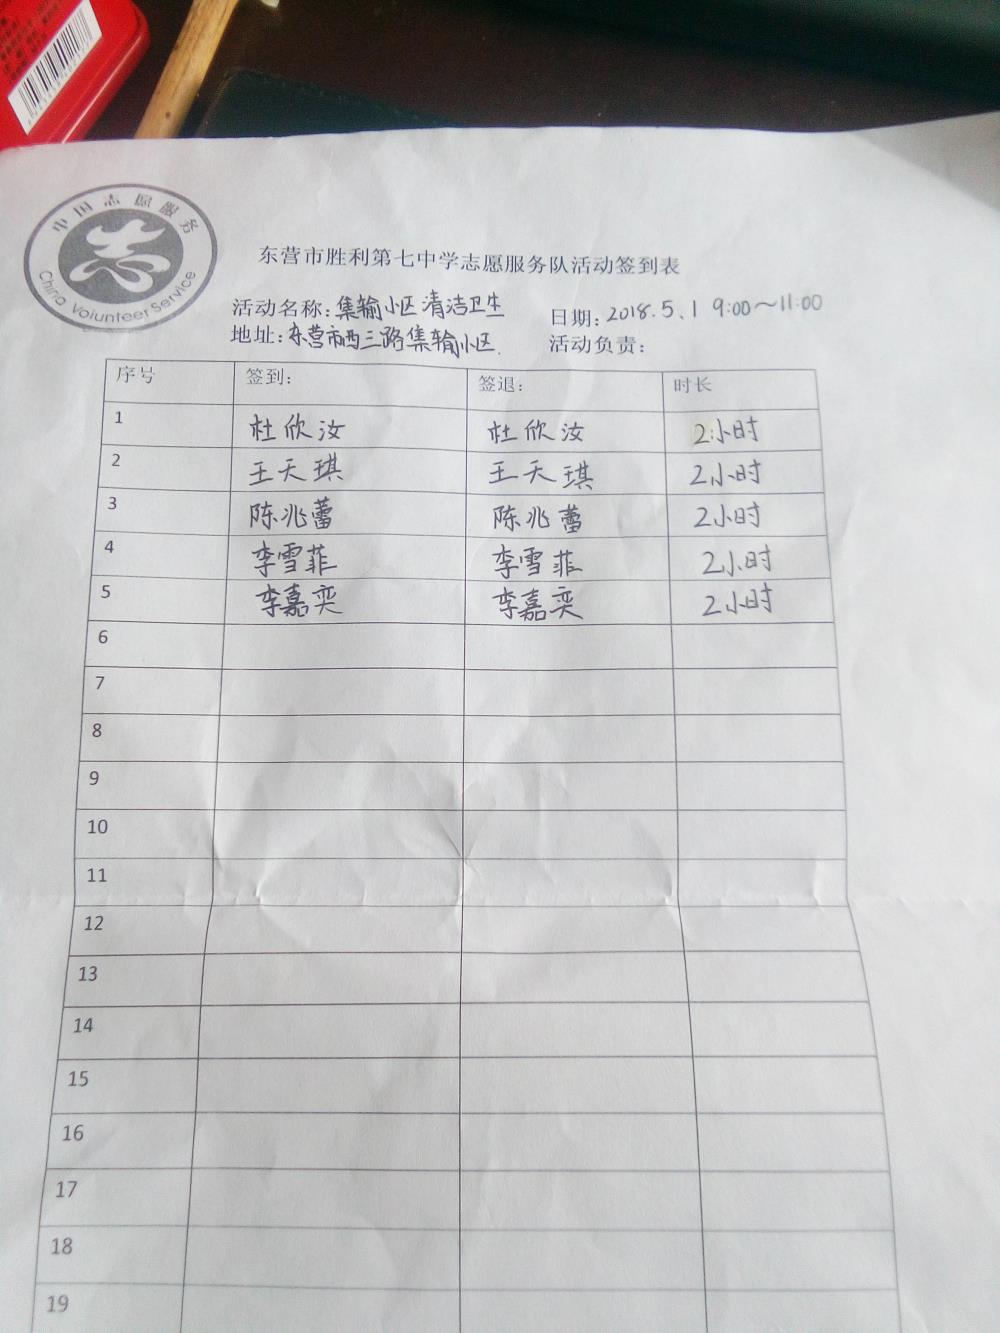 中国志愿服务
China Voiunteer Service
东营市胜利第七中学志愿服务队活动签到表
活动名称:集输小区清洁卫生 日期:2018.5.1 9:00~11:00
地址:东营市西三路集输小区. 活动负责:
序号 签到: 签退: 时长
1 杜欣汝 杜欣汝 2小时
2 王天琪 王天琪 2小时
3 陈兆蕾 陈兆蕾 2小时
4 李雪菲 李雪菲 2小时
5 李嘉奕 李嘉奕 2小时
6
7
8
9
10
11
12
13
14
15
16
17
18
19